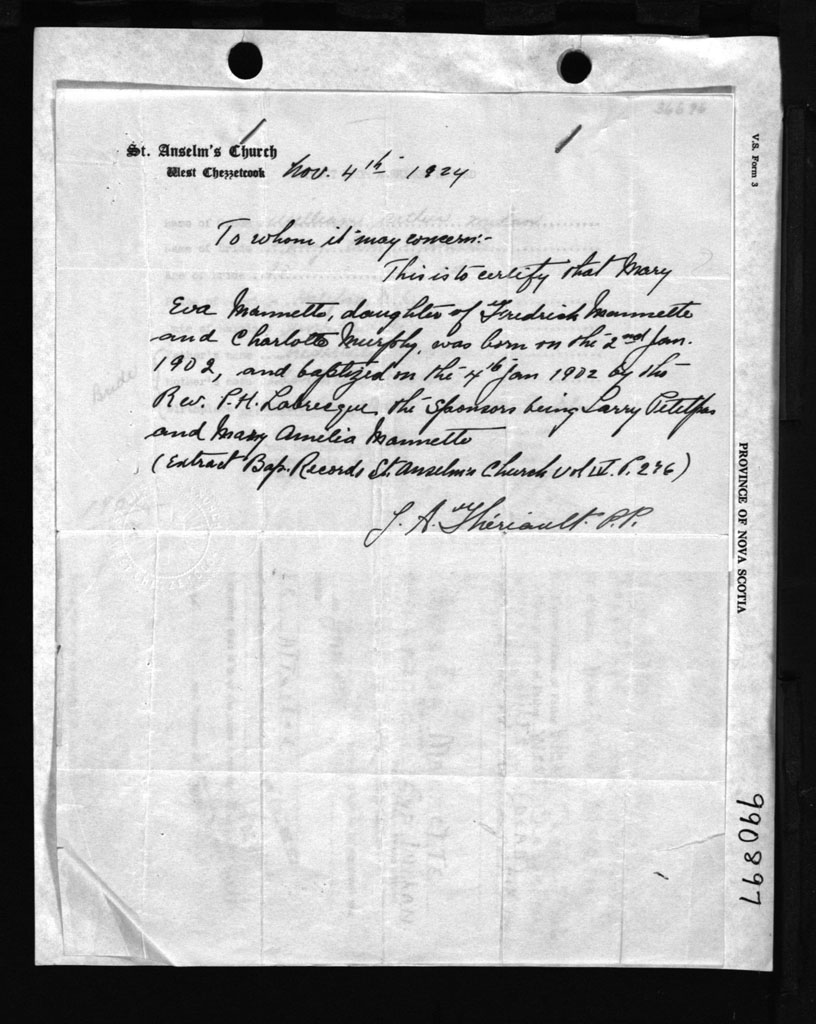 36696
V.S. Form 3
St. Anselm's Church
West Chezzetcook Nov. 4th 1924
To whom it may concern:-
This is to certify that Mary
Eva Mannette, daughter of Fredrick Mannette
and Charlotte Murphy, was born on the 2nd Jan.
1902, and baptized on the 4th Jan 1902 by the
Rev. P.H. Labrecque, the sponsors being Larry Petitpas
and Mary Amelia Mannette
(Extract Bap. Records St. Anselm's Church Vol IV. P. 276)
J. A. Thériault. P.P.
Bride
PROVINCE OF NOVA SCOTIA
990897